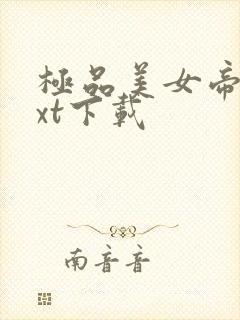 極品美女帝
xt下載
南音音